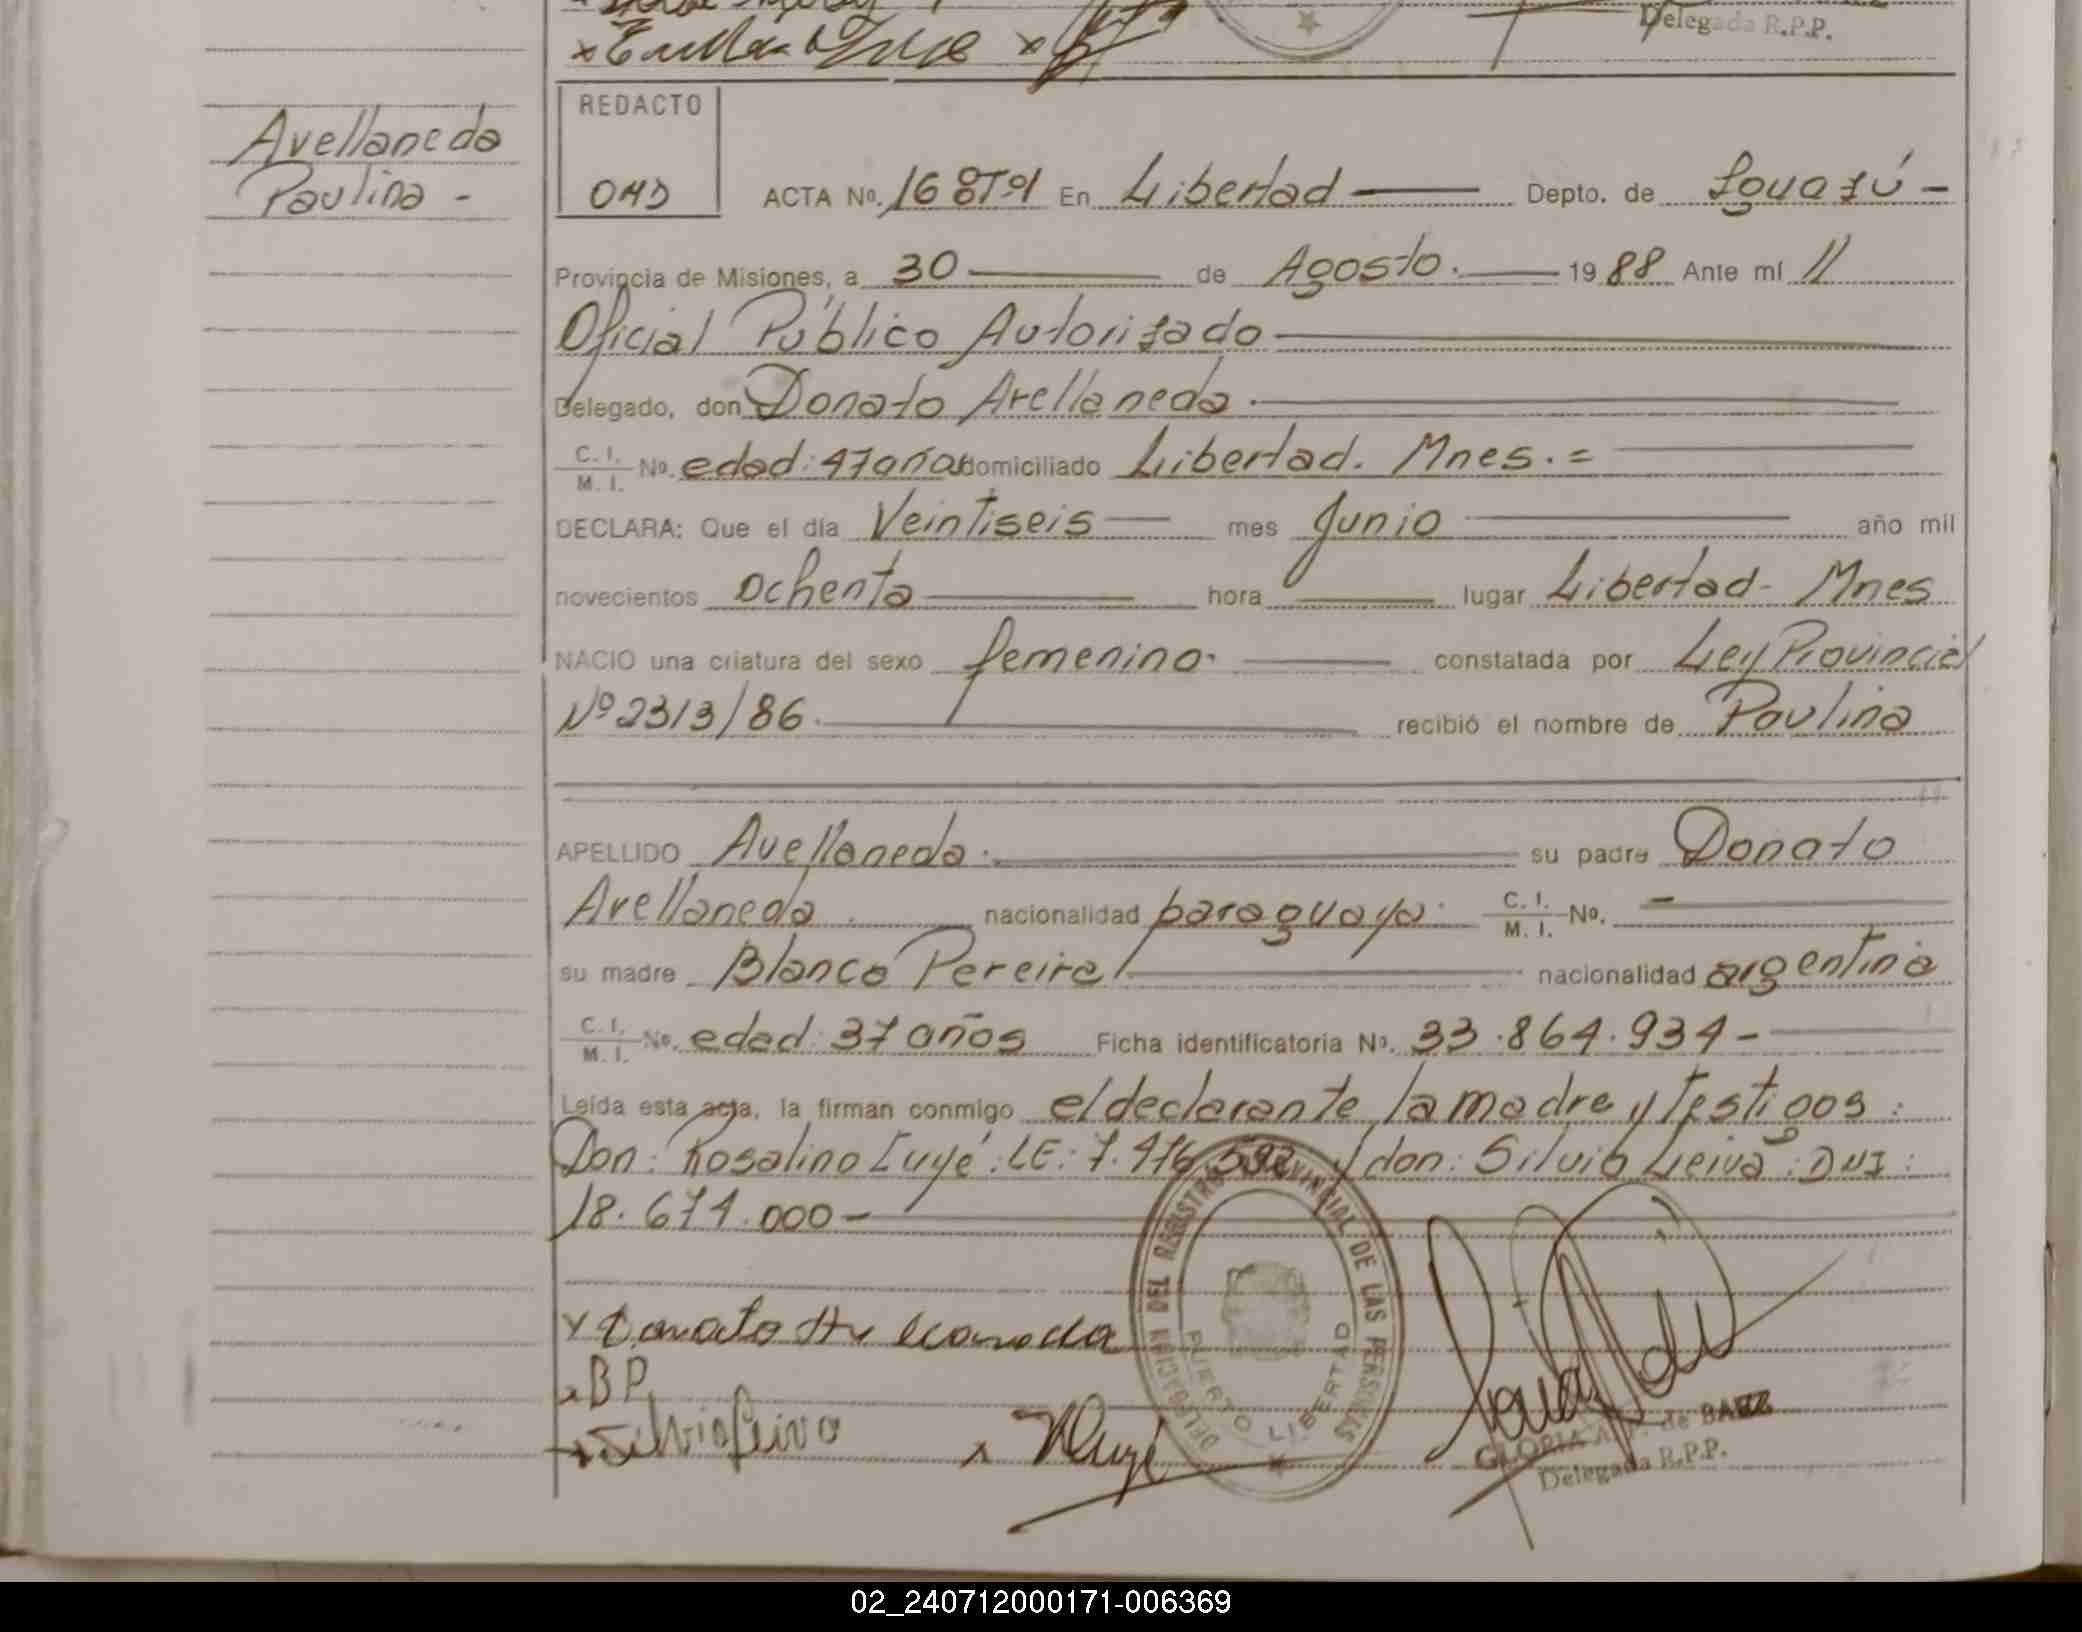 Delegada R.P.P.
Avellaneda
Paulina -
REDACTO
OHD
ACTA Nº. 168 Tº1 En Libertad Depto. de Iguazú -
Provincia de Misiones, a 30 de Agosto. 1988 Ante mí //
Oficial Público Autorizado
Delegado, don Donato Avellaneda.
C. I. M. I. Nº. edad: 47 años domiciliado Libertad. Mnes. =
DECLARA: Que el día Veintiseis mes Junio año mil
novecientos ochenta hora lugar Libertad - Mnes
NACIO una criatura del sexo femenino. constatada por Ley Provincial
Nº 2313/86. recibió el nombre de Paulina
APELLIDO Avellaneda. su padre Donato
Avellaneda. nacionalidad paraguaya. C. I. M. I. Nº. -
su madre Blanca Pereira nacionalidad argentina
C. I. M. I. Nº. edad: 37 años Ficha identificatoria Nº. 33.864.934 -
Leída esta acta, la firman conmigo el declarante, la madre y Testigos:
Don: Rosalino LE: 7.476.592 y don: Silvio Leiva: DNI:
18.674.000 -
DELEGACION DEL REGISTRO PROVINCIAL DE LAS PERSONAS
PUERTO LIBERTAD
x Donato
x BP
x Silvio Leiva x
GLORIA de BAEZ
Delegada R.P.P.
02_240712000171-006369